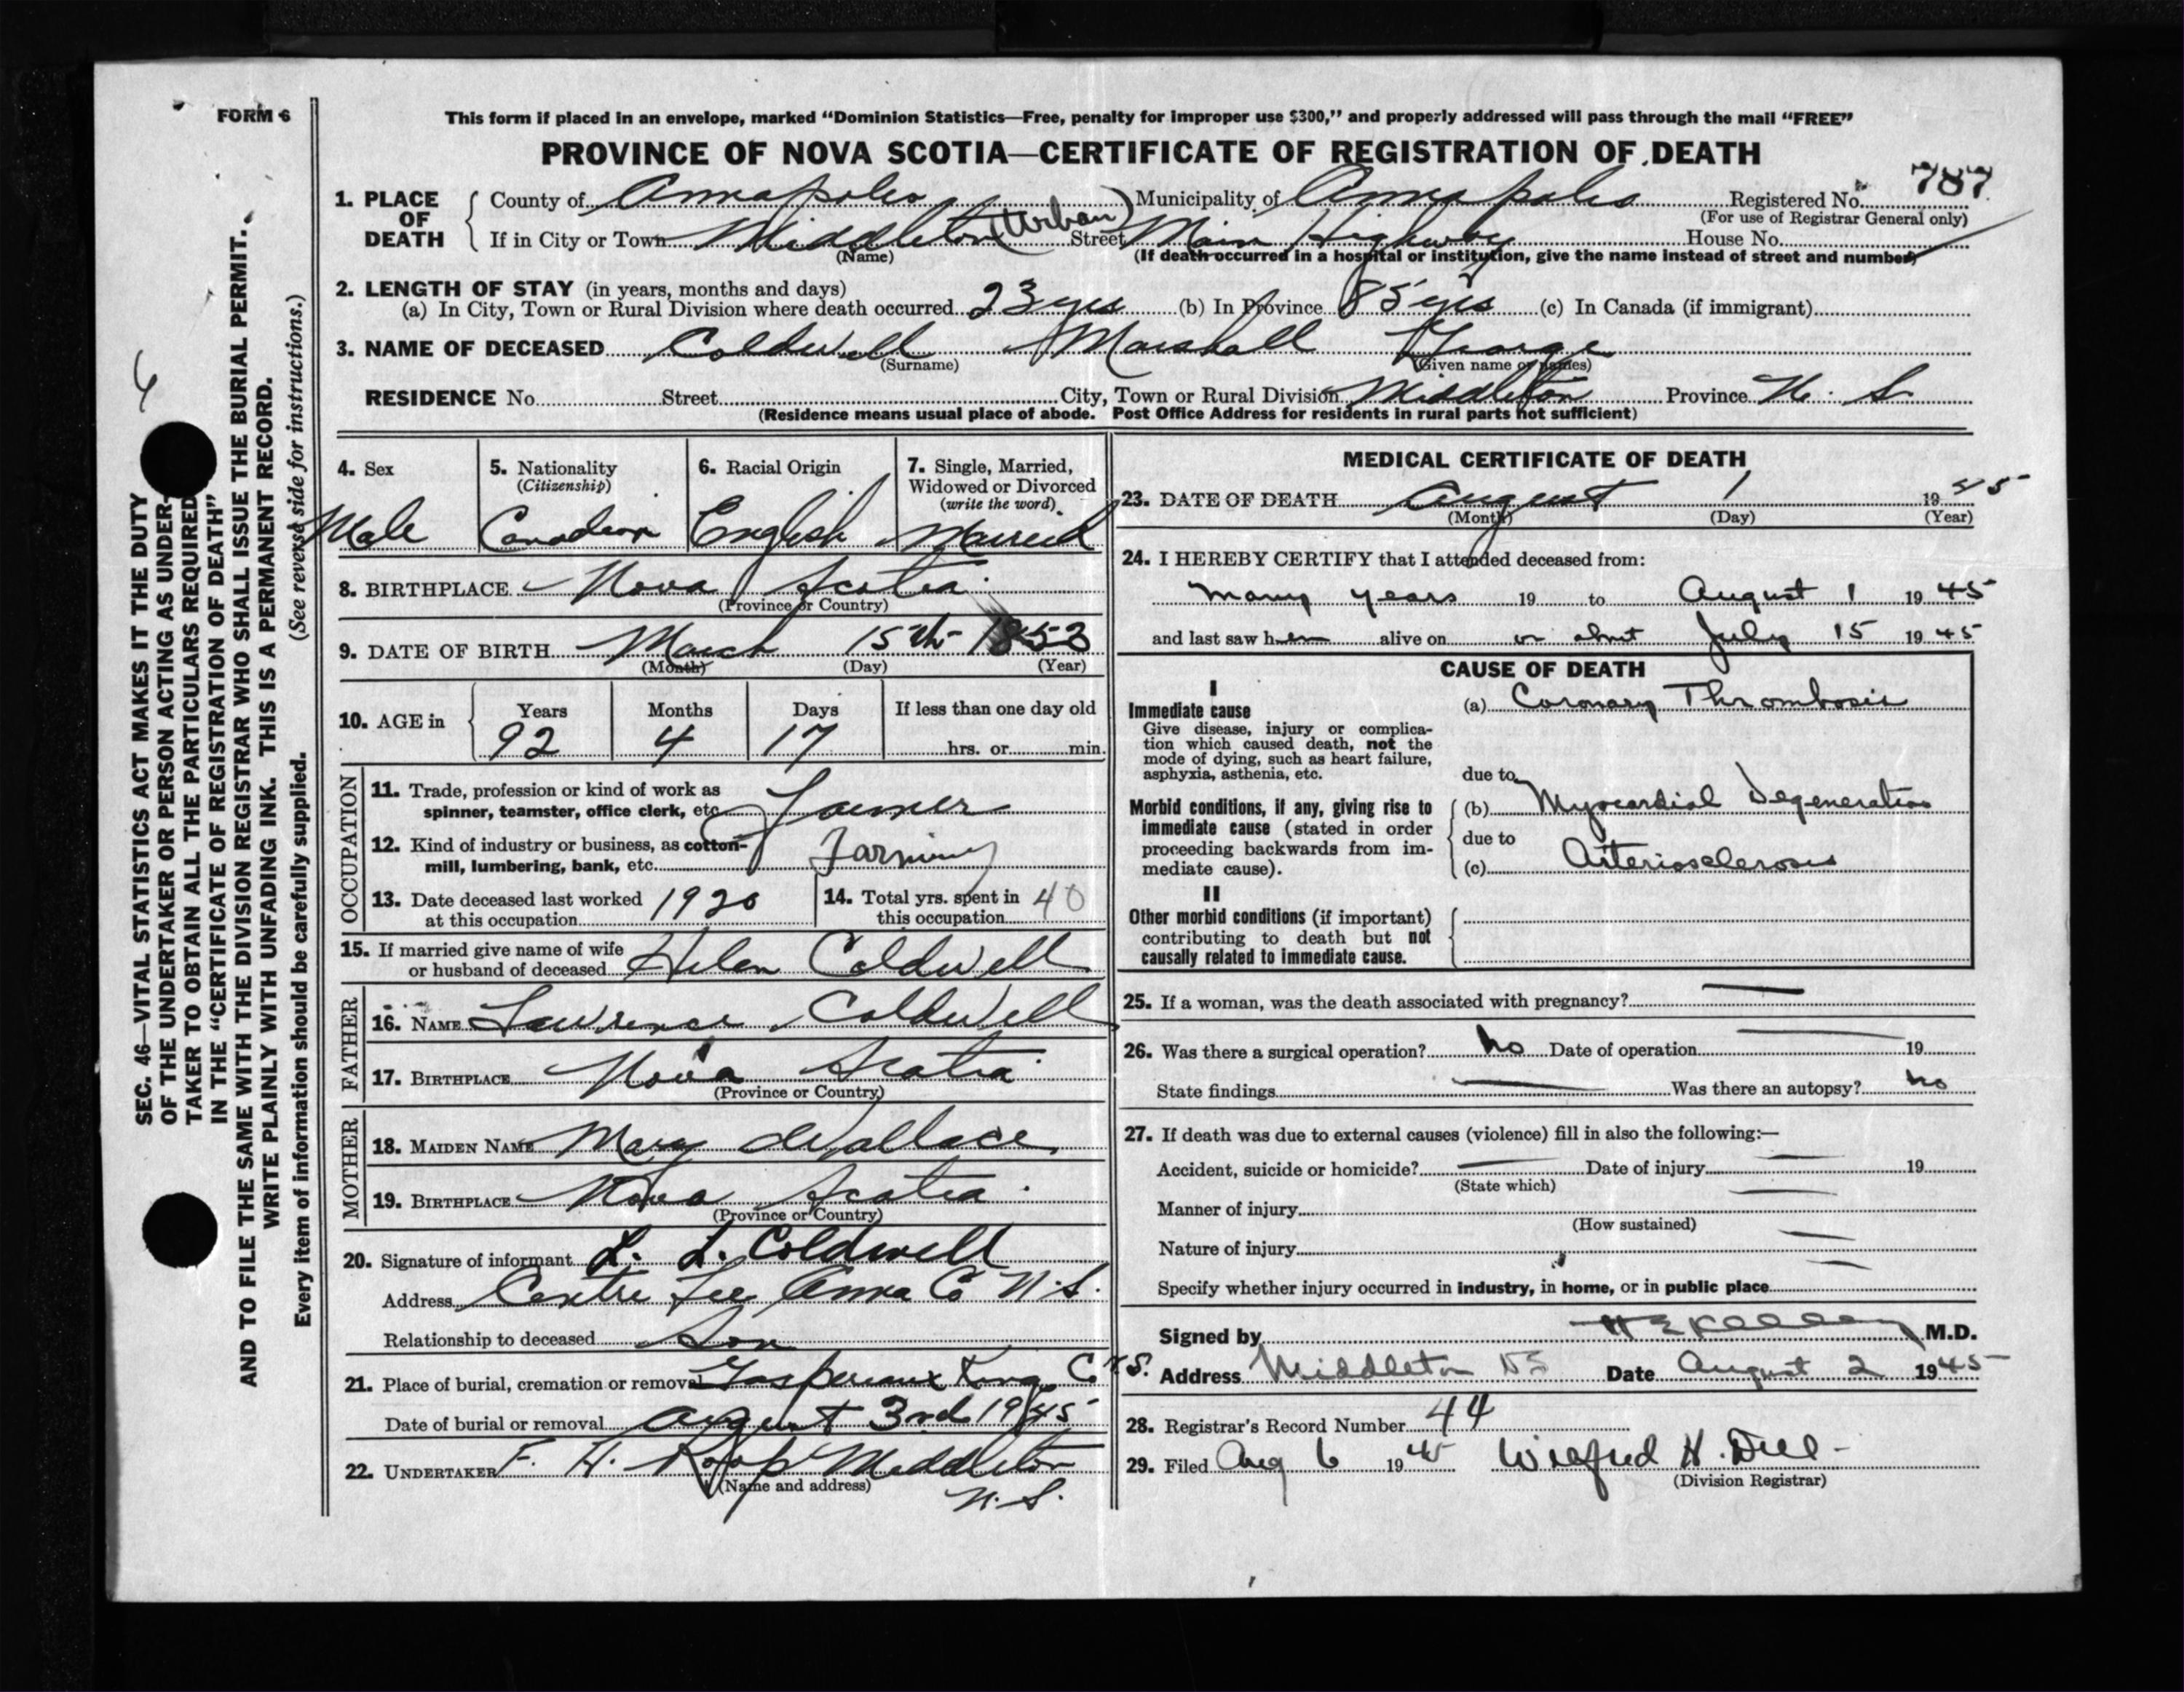 FORM 6
This form if placed in an envelope, marked “Dominion Statistics—Free, penalty for improper use $300,” and properly addressed will pass through the mail “FREE”
PROVINCE OF NOVA SCOTIA—CERTIFICATE OF REGISTRATION OF DEATH
787
1. PLACE OF DEATH County of Annapolis Municipality of Annapolis Registered No.
(For use of Registrar General only)
If in City or Town Middleton (Urban) Street Main Highway House No.
(Name) (If death occurred in a hospital or institution, give the name instead of street and number)
2. LENGTH OF STAY (in years, months and days)
(a) In City, Town or Rural Division where death occurred 23 yrs (b) In Province 85 yrs (c) In Canada (if immigrant)
3. NAME OF DECEASED Coldwell Marshall George
(Surname) (Given name or names)
RESIDENCE No. Street City, Town or Rural Division Middleton Province N. S.
(Residence means usual place of abode. Post Office Address for residents in rural parts not sufficient)
4. Sex 5. Nationality 6. Racial Origin 7. Single, Married,
(Citizenship) Widowed or Divorced
(write the word)
Male Canadian English Married
8. BIRTHPLACE Nova Scotia
(Province or Country)
9. DATE OF BIRTH March 15th 1853
(Month) (Day) (Year)
10. AGE in Years Months Days If less than one day old
92 4 17 hrs. or min.
OCCUPATION
11. Trade, profession or kind of work as
spinner, teamster, office clerk, etc. Farmer
12. Kind of industry or business, as cotton-
mill, lumbering, bank, etc. Farming
13. Date deceased last worked
at this occupation 1920
14. Total yrs. spent in
this occupation 40
15. If married give name of wife
or husband of deceased Helen Coldwell
FATHER
16. NAME Lawrence Coldwell
17. BIRTHPLACE Nova Scotia
(Province or Country)
MOTHER
18. MAIDEN NAME Mary Wallace
19. BIRTHPLACE Nova Scotia
(Province or Country)
20. Signature of informant L. L. Coldwell
Address Centre Lea Anna Co N.S.
Relationship to deceased Son
21. Place of burial, cremation or removal Gaspereaux King Co N.S.
Date of burial or removal August 3rd 1945
22. UNDERTAKER F. H. Roop Middleton
(Name and address)
N.S.
MEDICAL CERTIFICATE OF DEATH
23. DATE OF DEATH August 1 1945
(Month) (Day) (Year)
24. I HEREBY CERTIFY that I attended deceased from:
many years 19 to August 1 1945
and last saw him alive on or about July 15 1945
CAUSE OF DEATH
I
Immediate cause
Give disease, injury or complica-
tion which caused death, not the
mode of dying, such as heart failure,
asphyxia, asthenia, etc.
(a) Coronary Thrombosis
due to
Morbid conditions, if any, giving rise to
immediate cause (stated in order
proceeding backwards from im-
mediate cause).
(b) Myocardial Degeneration
due to
(c) Arteriosclerosis
II
Other morbid conditions (if important)
contributing to death but not
causally related to immediate cause.
25. If a woman, was the death associated with pregnancy? —
26. Was there a surgical operation? No Date of operation — 19
State findings — Was there an autopsy? No
27. If death was due to external causes (violence) fill in also the following:—
Accident, suicide or homicide? — Date of injury — 19
(State which)
Manner of injury —
(How sustained)
Nature of injury —
Specify whether injury occurred in industry, in home, or in public place —
Signed by M.D.
Address Middleton NS Date August 2 1945
28. Registrar's Record Number 44
29. Filed Aug 6 1945 Wilfred H.
(Division Registrar)
SEC. 46—VITAL STATISTICS ACT MAKES IT THE DUTY
OF THE UNDERTAKER OR PERSON ACTING AS UNDER-
TAKER TO OBTAIN ALL THE PARTICULARS REQUIRED
IN THE “CERTIFICATE OF REGISTRATION OF DEATH”
AND TO FILE THE SAME WITH THE DIVISION REGISTRAR WHO SHALL ISSUE THE BURIAL PERMIT.
WRITE PLAINLY WITH UNFADING INK. THIS IS A PERMANENT RECORD.
Every item of information should be carefully supplied. (See reverse side for instructions.)